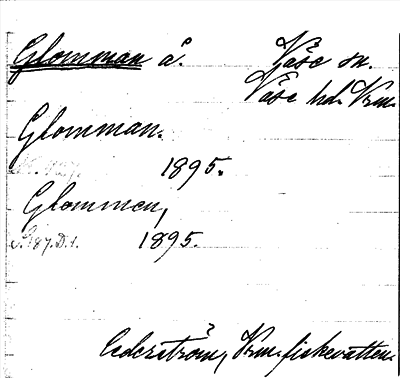 Glomman å. Väse sn.
Väse hd. Vrm.
Glomman.
1895.
Glommen,
S. 187. D. 1. 1895.
Cederström, Vrm. fiskevatten.